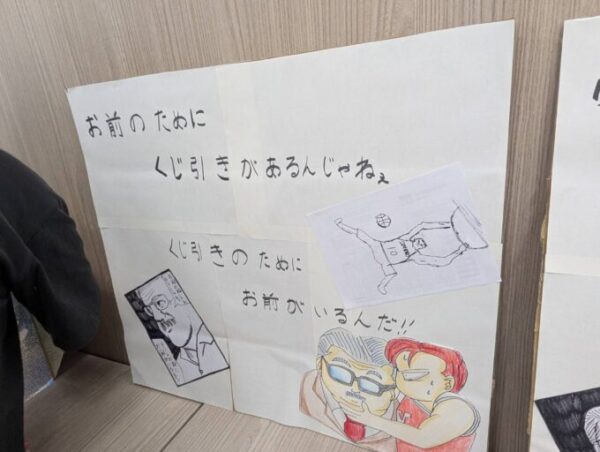 お前のために
くじ引きがあるんじゃねぇ
くじ引きのために
お前がいるんだ!!
10